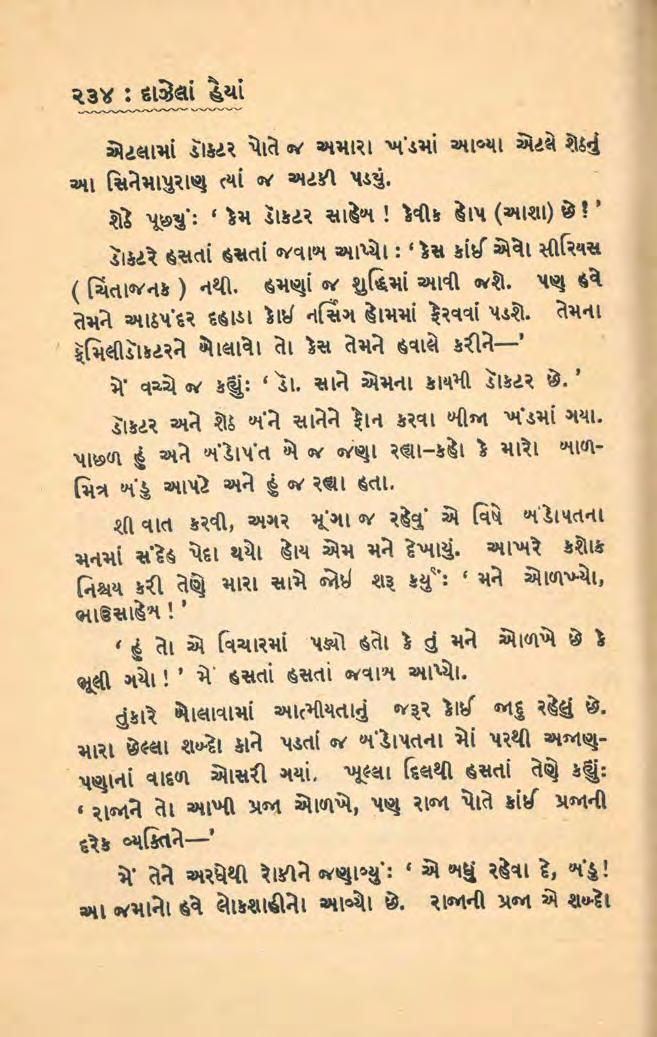 ૨૩૪ : દાઝેલાં હૈયાં
એટલામાં ડૉક્ટર પોતે જ અમારા ખંડમાં આવ્યા એટલે શેઠનું
આ સિનેમાપુરાણ ત્યાં જ અટકી પડયું.
શેઠે પૂછ્યું: ‘ કેમ ડૉક્ટર સાહેબ ! કેવીક હોપ (આશા) છે ! ’
ડૉક્ટરે હસતાં હસતાં જવાબ આપ્યો : ‘ કેસ કાંઈ એવો સીરિયસ
( ચિંતાજનક ) નથી. હમણાં જ શુદ્ધિમાં આવી જશે. પણ હવે
તેમને આઠપંદર દહાડા કોઈ નર્સિંગ હોમમાં ફેરવવાં પડશે. તેમના
ફૅમિલીડૉક્ટરને બોલાવો તો કેસ તેમને હવાલે કરીને—’
મેં વચ્ચે જ કહ્યું: ‘ ડૉ. સાને એમના કાયમી ડૉક્ટર છે. ’
ડૉક્ટર અને શેઠ બંને સાનેને ફોન કરવા બીજા ખંડમાં ગયા.
પાછળ હું અને બંડોપંત બે જ જણા રહ્યા–કહો કે મારો બાળ-
મિત્ર બંડુ આપટે અને હું જ રહ્યા હતા.
શી વાત કરવી, અગર મૂંગા જ રહેવું એ વિષે બંડોપતના
મનમાં સંદેહ પેદા થયો હોય એમ મને દેખાયું. આખરે કશોક
નિશ્ચય કરી તેણે મારા સામે જોઈ શરૂ કર્યું: ‘ મને ઓળખ્યો,
ભાઉસાહેબ ! ’
‘ હું તો એ વિચારમાં પડ્યો હતો કે તું મને ઓળખે છે કે
ભૂલી ગયો ! ’ મેં હસતાં હસતાં જવાબ આપ્યો.
તુંકારે બોલાવામાં આત્મીયતાનું જરૂર કોઈ જાદુ રહેલું છે.
મારા છેલ્લા શબ્દો કાને પડતાં જ બંડોપતના મોં પરથી અજાણ-
પણાનાં વાદળ ઓસરી ગયાં. ખૂલ્લા દિલથી હસતાં તેણે કહ્યું:
‘ રાજાને તો આખી પ્રજા ઓળખે, પણ રાજા પોતે કાંઈ પ્રજાની
દરેક વ્યક્તિને—’
મેં તેને અરધેથી રોકીને જણાવ્યું: ‘ એ બધું રહેવા દે, બંડુ!
આ જમાનો હવે લોકશાહીનો આવ્યો છે. રાજાની પ્રજા એ શબ્દો